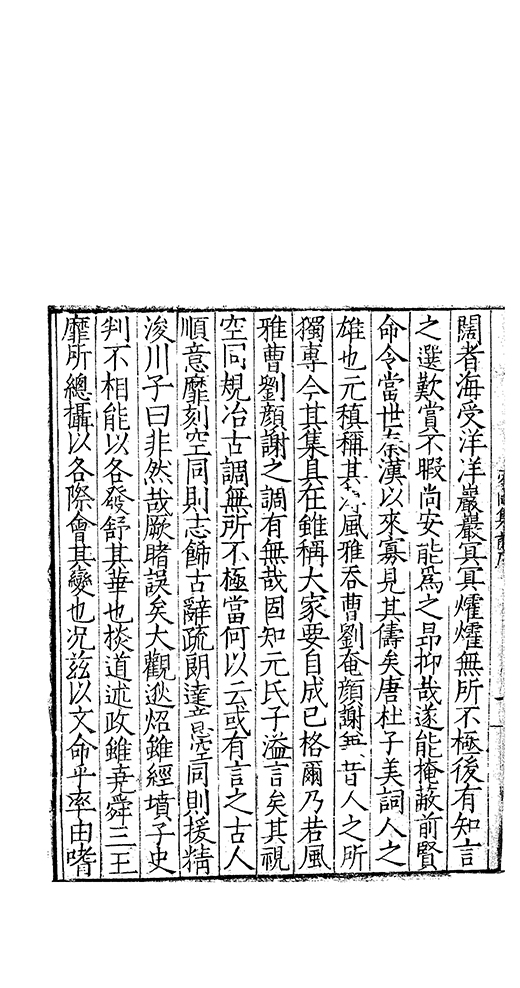 闊者海受洋洋巖巖冥冥爗爗無所不極後有知言
之選歎賞不暇尚安能爲之昻抑哉遂能掩蔽前賢
命令當世秦漢以來寡見其儔矣唐杜子美詞人之
雄也元稹稱其 風雅吞曹劉奄顔謝 昔人之所
獨專今其集具在雖稱大家要自成已格爾乃若風
雅曹劉顔謝之調有無哉固知元氏子溢言矣其視
空同規冶古調無所不極當何以云或有言之古人
順意靡刻空同則志餙古辭疏朗達意 空同則援精
浚川子曰非然哉厥睹誤矣大觀逖炤雖經墳子史
判不相能以各發舒其華也棪道述政雖堯舜三王
靡所總攝以各際會其變也况兹以文命乎率由嗜